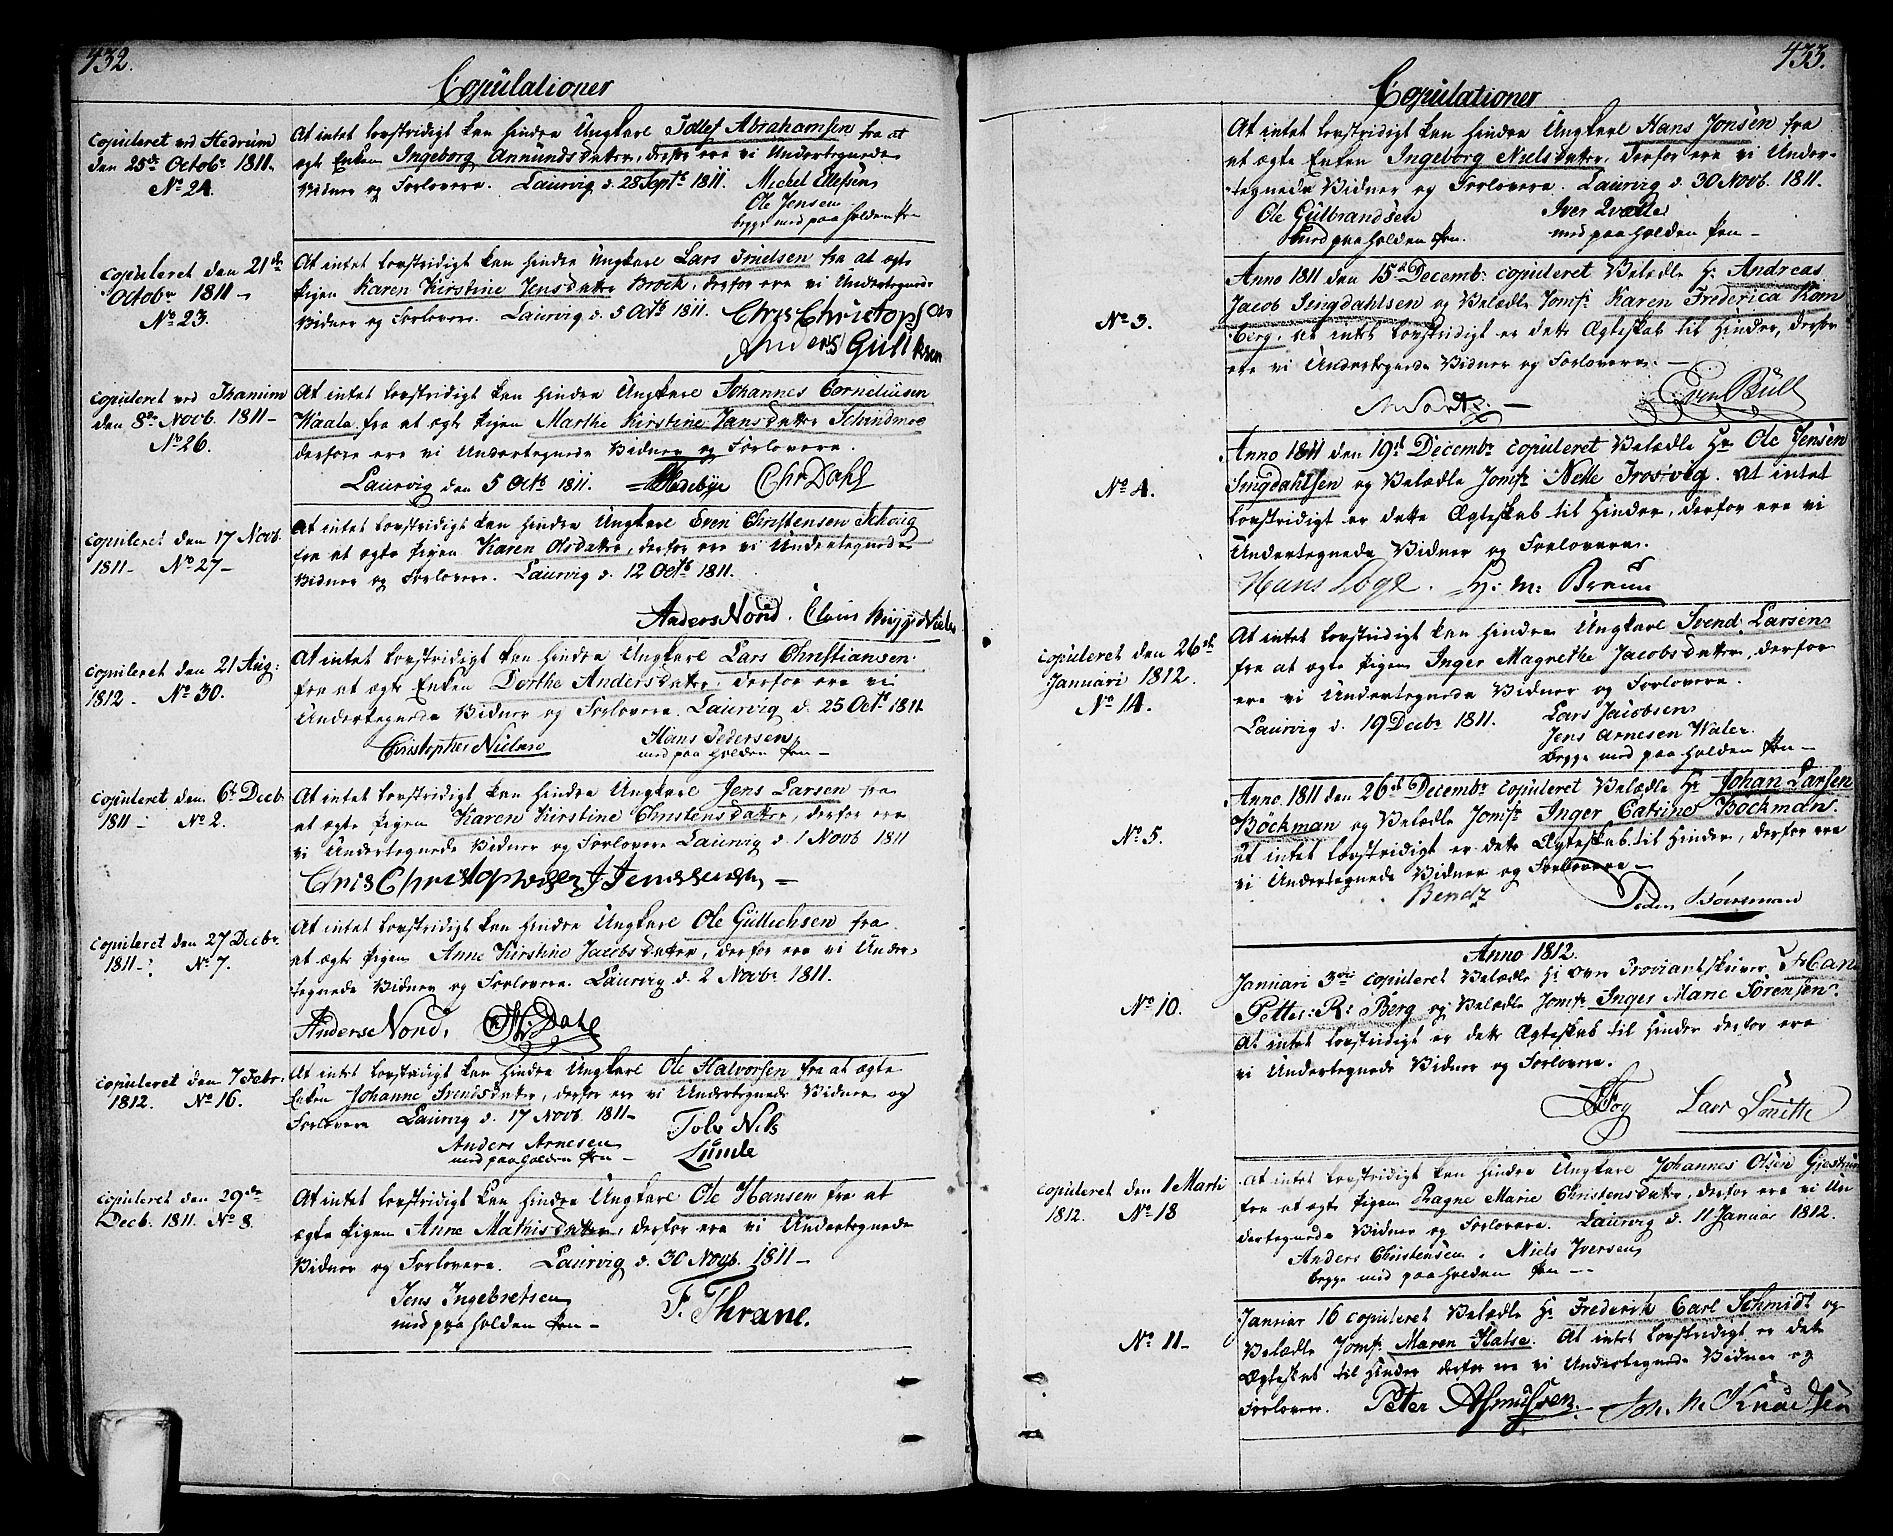 432.
Copulationer
Copuleret ved Hedrum
den 25de Octobr 1811.
No 24.
At intet lovstridigt kan hindre Ungkarl Tollef Abrahamsen fra at
ægte Enken Ingeborg Annunds datter, derfor ere vi Undertegnede
Vidner og Forlovere. Laurvig d. 28 Septb 1811. Michel Ellefsen
Ole Jensen
begge med paaholden Pen
Copuleret den 21de
Octobr 1811 –
No 23.
At intet lovstridigt kan hindre Ungkarl Lars Truelsen fra at ægte
Pigen Karen Kirstine Jensdatter Brock, derfor ere vi Undertegnede
Vidner og Forlovere. Laurvig d. 5 Octb 1811. Chris Christophsen
Anders Gulliksen
copuleret ved Thanum
den 8de Novb. 1811 –
No 26.
At intet lovstridigt kan hindre Ungkarl Johannes Corneliusen
Waale fra at ægte Pigen Marthe Kirstine Jansdatter
derfore ere vi Undertegnede Vidner og Forlovere.
Laurvig den 5 Octb 1811. Chr Dahl
copuleret den 17 Novb.
1811 – No 27 –
At intet lovstridigt kan hindre Ungkarl Sven Christensen
fra at ægte Pigen Karen Olsdatter, derfor ere vi Undertegnede
Vidner og Forlovere. Laurvig d. 12 Octb 1811.
Anders Nord.
copuleret den 21 Aug:
1812. No 30.
At intet lovstridigt kan hindre Ungkarl Lars Christiansen
fra at ægte Enken Dorthe Anders datter, derfor ere vi
Undertegnede Vidner og Forlovere. Laurvig d. 25 Octb 1811
Christopher Nielsen Hans Pedersen
med paaholden Pen –
copuleret den 6t Decb
1811 – No 2.
At intet lovstridigt kan hindre Ungkarl Jens Larsen fra
at ægte Pigen Karen Kirstine Christensdatter, derfor ere
vi Undertegnede Vidner og Forlovere Laurvig d. 1 Novb 1811
Chris Christophersen
copuleret den 27 Decbr
1811 – No 7.
At intet lovstridigt kan hindre Ungkarl Ole Gullichsen fra
at ægte Pigen Anne Kirstine Jacobsdatter, derfor ere vi Under-
tegnede Vidner og Forlovere. Laurvig d. 2 Novbr 1811.
Anders Nord. Dahl
copuleret den 7 Febr.
1812. No 16.
At intet lovstridigt kan hindre Ungkarl Ole Halvorsen fra at ægte
Enken Johanne Svendsdatter, derfor ere vi Undertegnede Vidner og
Forlovere Laurvig d. 17 Novb. 1811 –
Anders Arnesen Tolv Nils
med paaholden Pen – Lunde
copuleret den 29de
Decb. 1811. No 8.
At intet lovstridigt kan hindre Ungkarl Ole Hansen fra at
ægte Pigen Anne Mathisdatter, derfor ere vi Undertegnede
Vidner og Forlovere. Laurvig d. 30 Novb. 1811 –
Jens Ingebretsen F. Thrane.
med paaholden Pen –
433.
Copulationer
At intet lovstridigt kan hindre Ungkarl Hans Jonsen fra
at ægte Enken Ingeborg Nielsdatter, derfor ere vi Under-
tegnede Vidner og Forlovere. Laurvig d. 30 Novb. 1811.
Ole Gulbrandsen Iver
med paaholden Pen. med paaholden Pen –
No 3.
Anno 1811 den 15d Decembr copuleret Velædle Hr Andreas
Jacob Lingdahlsen og Velædle Jomfr Karen Frederica Rom
berg, at intet lovstridigt er dette Ægteskab til Hinder, derfor
ere vi Undertegnede Vidner og Forlovere. –
Even Bull
No 4.
Anno 1811 den 19d Decembr copuleret Velædle Hr Ole Jensen
Lingdahlsen og Velædle Jomfr Nelle Trosvig. At intet
lovstridigt er dette Ægteskab til Hinder, derfor ere vi
Undertegnede Vidner og Forlovere.
Hans Loge. H: M: Bruun
copuleret den 26de
Januari 1812.
No 14.
At intet lovstridigt kan hindre Ungkarl Svend Larsen
fra at ægte Pigen Inger Magrethe Jacobsdatter, derfor
ere vi Undertegnede Vidner og Forlovere.
Laurvig d. 19 Decbr 1811. Lars Jacobsen
Jens Arnesen Waler
begge med paaholden Pen –
No 5.
Anno 1811 den 26d Decembr copuleret Velædle Hr Johan Larsen
Böckman og Velædle Jomfr Inger Catrine Böckman
at intet lovstridigt er dette Ægteskab til Hinder, derfor ere
vi Undertegnede Vidner og Forlovere –
Bendz Peder
Anno 1812.
No 10.
Januari 3die copuleret Velædle Hr over Proviantskriver
Petter: R: Berg og Velædle Jomfr Inger Marie Sörensen.
At intet lovstridigt er dette Ægteskab til Hinder derfor ere
vi Undertegnede Vidner og Forlovere.
Fog Lars Smith
copuleret den 1 Marti
1812. No 18
At intet lovstridigt kan hindre Ungkarl Johannes Olsen
fra at ægte Pigen Ragne Marie Christensdatter, derfor ere vi Un
dertegnede Vidner og Forlovere. Laurvig d. 11 Januar 1812.
Anders Christensen. Niels Iversen
begge med paaholden Pen –
No 11 –
Januar 16 copuleret Velædle Hr Frederik Carl Schmidt og
Velædle Jomfr Maren Flatse. At intet lovstridigt er dette
Ægteskab til Hinder derfor ere vi Undertegnede Vidner og
Forlovere. Peter Asmussen. Joh. N. Knudsen